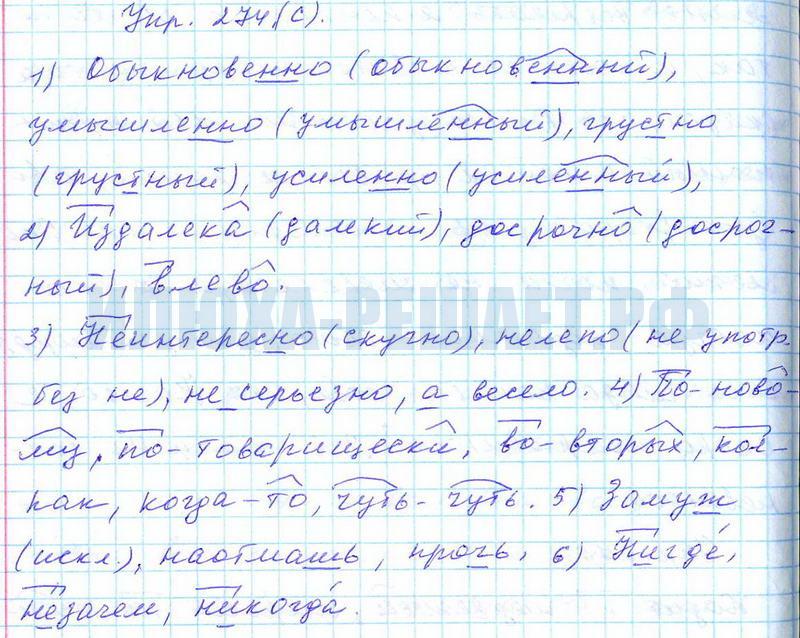 Упр. 274(с).
1) Обыкновенно (обыкновенный),
умышленно (умышленный), грустно
(грустный), усиленно (усиленный),
2) Издалека (далекий), досрочно (досроч-
ный), влево.
3) Неинтересно (скучно), нелепо (не употр.
без не), не серьезно, а весело. 4) По-ново-
му, по-товарищески, во-вторых, кол-
как, когда-то, чуть-чуть. 5) Замуж
(искл.), наотмашь, прочь, 6) Нигде,
незачем, никогда.
ИЛЮХА-РЕШАЕТ.РФ